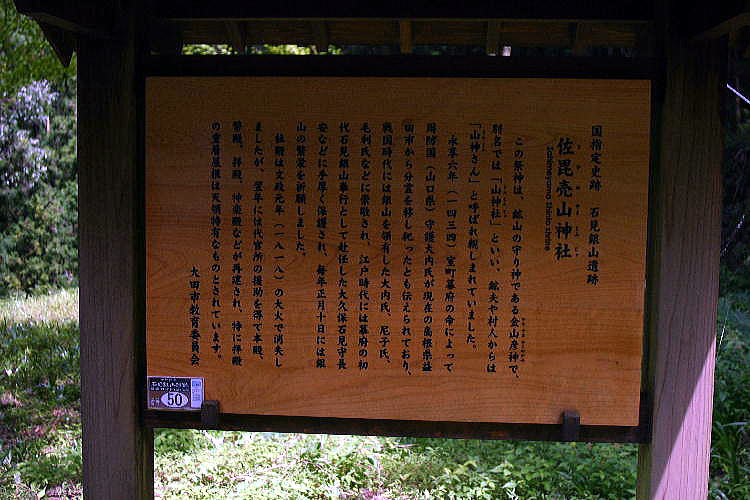 国指定史跡　石見銀山遺跡
佐毘売山神社
Sahimeyama shinto shrine
この祭神は、鉱山の守り神である金山彦神で、
別名では「山神社」といい、鉱夫や村人からは
「山神さん」と呼ばれ親しまれていました。
永享六年（一四三四）室町幕府の命によって
周防国（山口県）守護大内氏が現在の島根県益
田市から分霊を移し祀ったとも伝えられており、
戦国時代には銀山を領有した大内氏、尼子氏、
毛利氏などに崇敬され、江戸時代には幕府の初
代石見銀山奉行として赴任した大久保石見守長
安などに手厚く保護され、毎年正月十日には銀
山の繁栄を祈願しました。
社殿は文政元年（一八一八）の大火で消失し
ましたが、翌年には代官所の援助を得て本殿、
幣殿、拝殿、神楽殿などが再建され、特に拝殿
の重層屋根は天領特有なものとされています。
大田市教育委員会
50